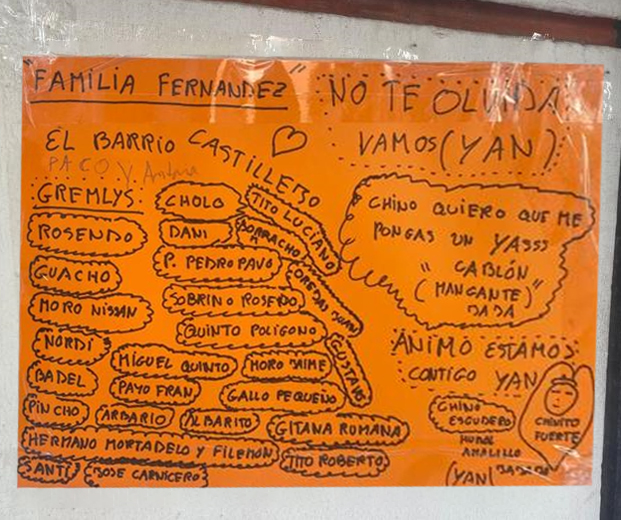 "FAMILIA FERNANDEZ"
NO TE OLVIDA
EL BARRIO CASTILLERO
VAMOS (YAN)
PACO Y. Antonia
GREMLYS:
CHOLO
TITO LUCIANO
ROSENDO
DANI
BORRACHO
GUACHO
P. PEDRO PAVO
OREJAS JUAN
MORO NISSAN
SOBRINO ROSENDO
NORDI
QUINTO POLIGONO
GUSTAVO
BADEL
MIGUEL QUINTO
MORO JAIME
PAYO FRAN
GALLO PEQUEÑO
PINCHO
ARBARIO
ALBARITO
GITANA ROMANA
HERMANO MORTADELO Y FILEMON
TITO ROBERTO
SANTI
JOSE CARNICERO
CHINO QUIERO QUE ME
PONGAS UN YASSS
"CABLÓN
(MANGANTE)"
JAJA
ÁNIMO ESTAMOS
CONTIGO YAN
CHINO
ESCUDERO
AMALILLO
(YAN)
CHINITO
FUERTE